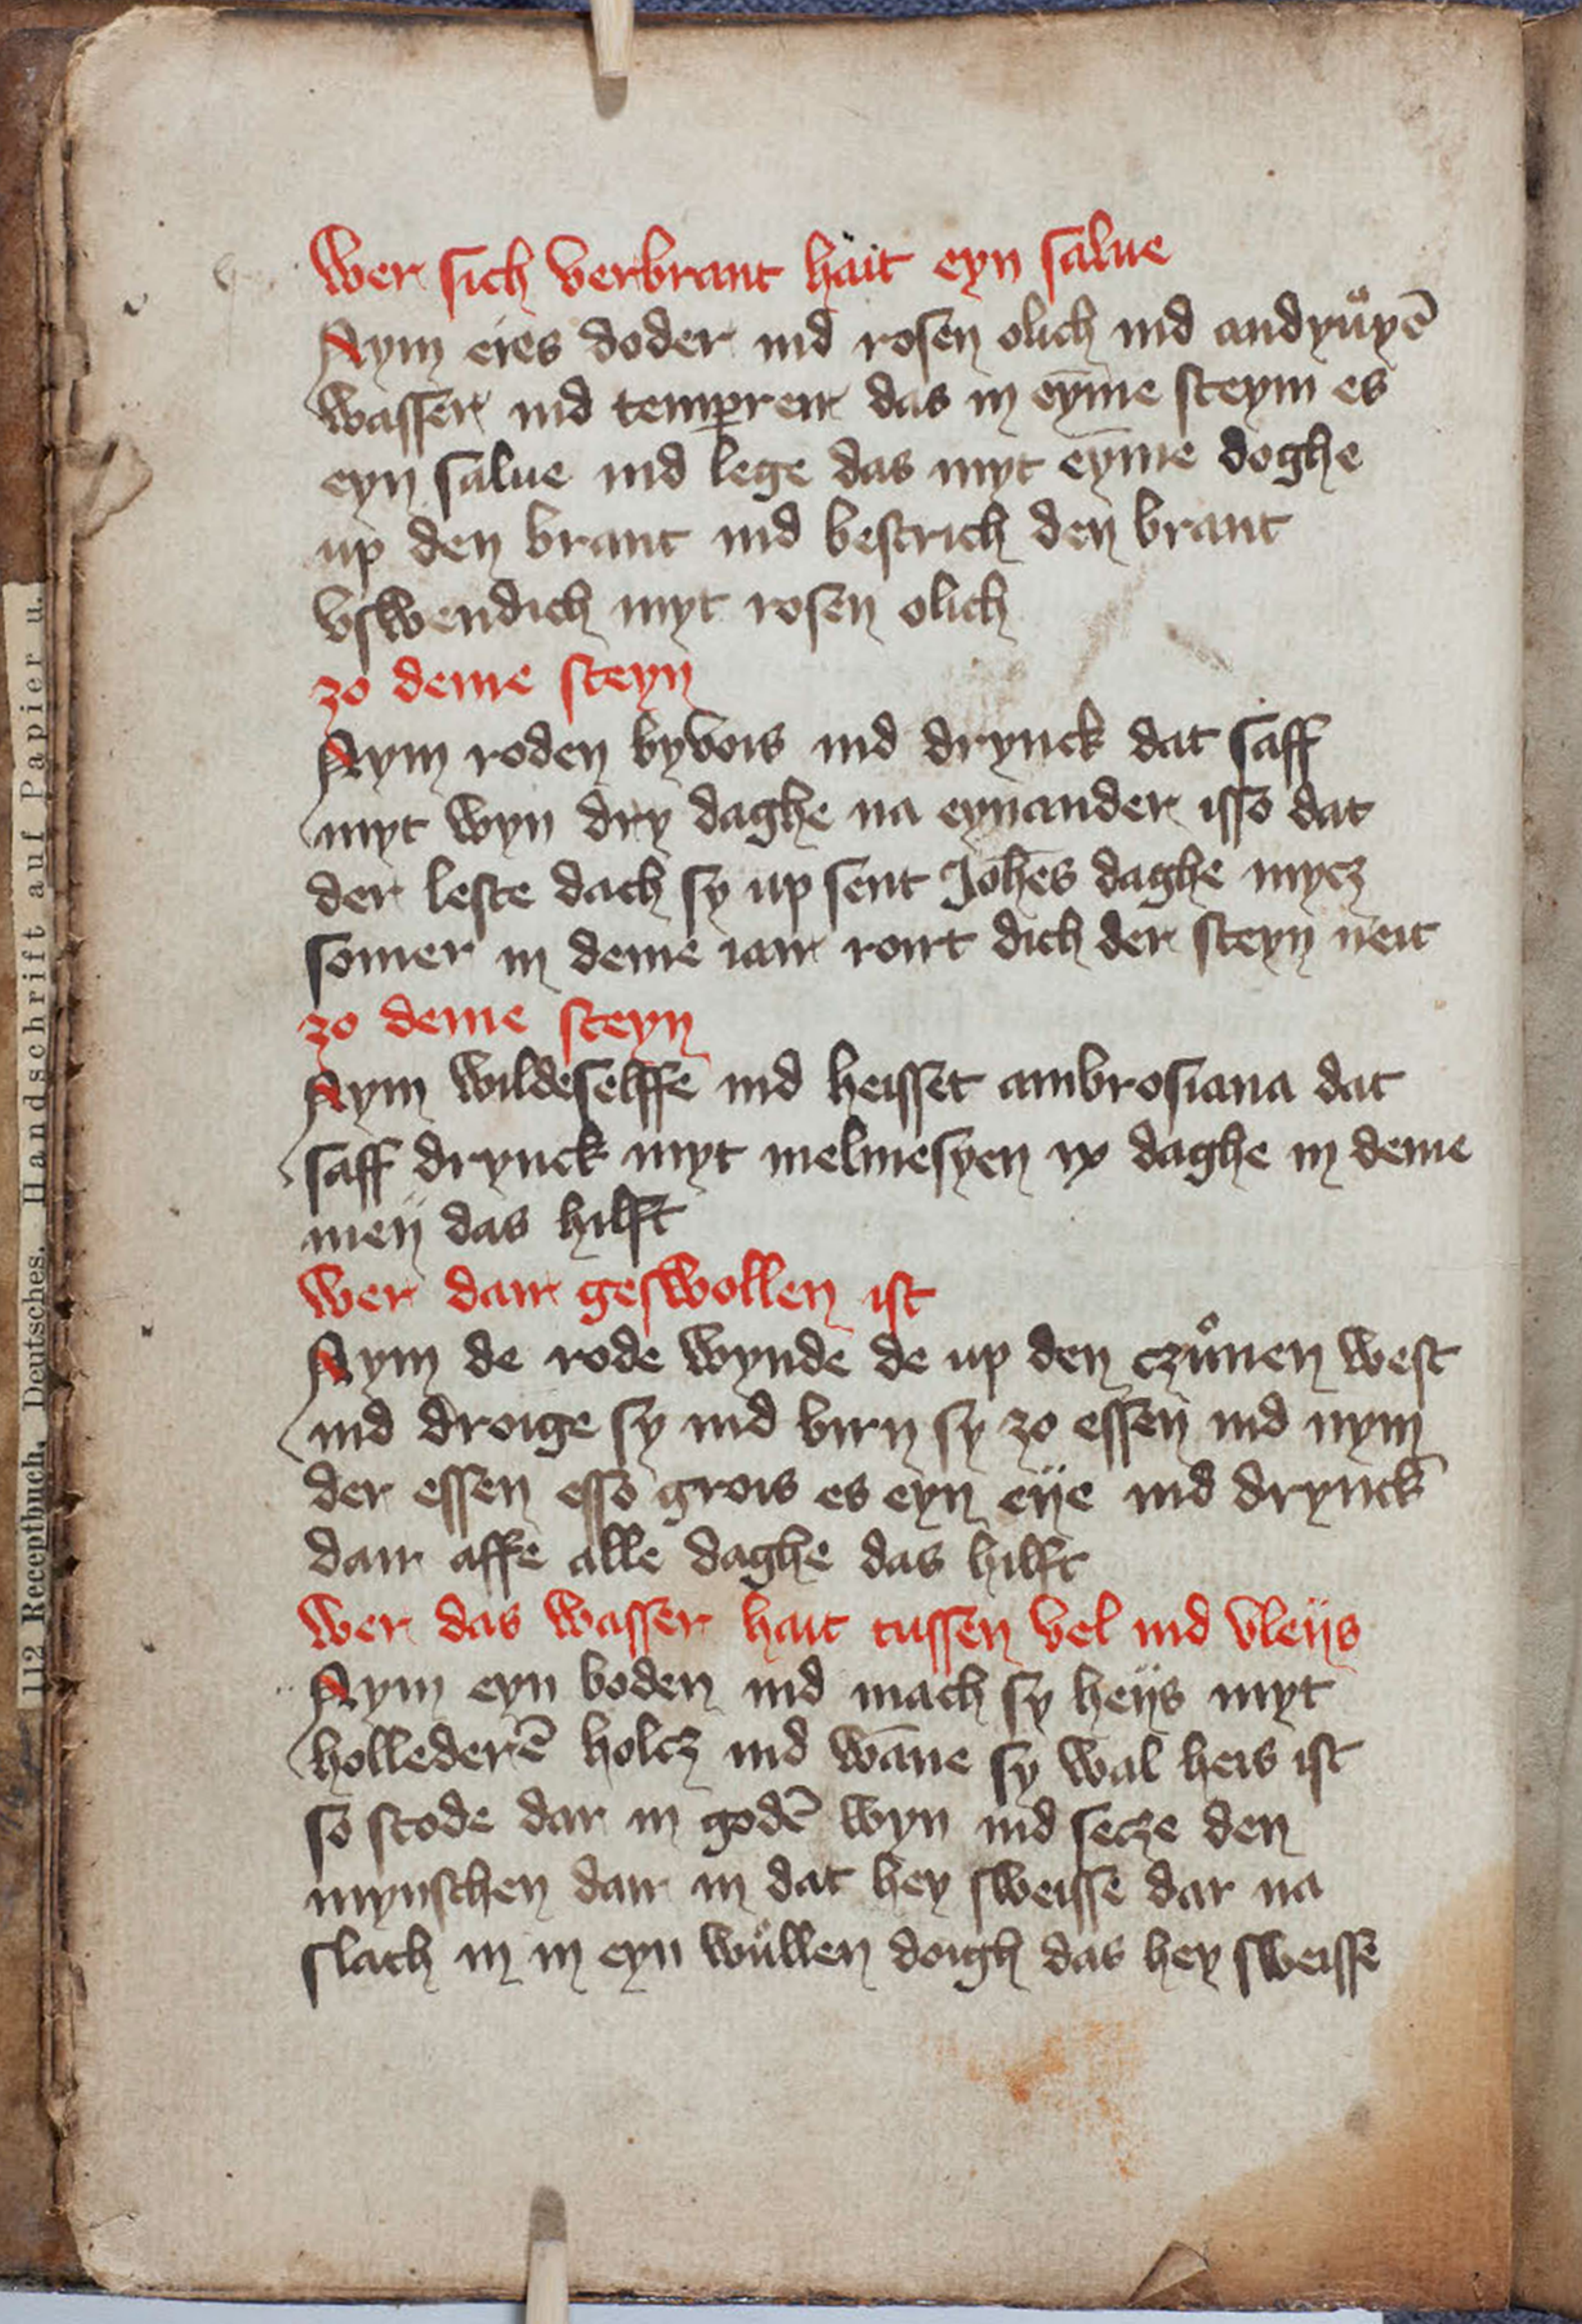 wer sich verbrant hait eyn salue
Nym eies doder ind rosen olich ind andyuͦyē
wasser ind temperer das in eyme steym es
eyn salue ind lege das myt eyme doghe
up den brant ind bestrich den brant
vswendich myt rosen olich
zo deme steyn
Nym roden byvois ind drynck dat saff
myt wyn dry daghe na eynander isso dat
der leste dach sy up sent Johēs daghe mycz
somer in deme iair roirt dich der steyn neit
zo deme steyn
Nym wildeselffe ind heisset ambrosiana dat
saff drynck myt melmesyen ix daghe in deme
meij das hilfft
wer dair geswollen ist
Nym de rode wynde de up den czuͦnen west
ind droige sy ind birn sy zo essen ind nym
der essen esso grois es eyn eije ind drynck
dair affe alle daghe das hilft
wer das wasser hait tussen vel ind vleijs
Nym eyn boden ind mach sy heijs myt
hollederē holcz ind wāne sy wal heis ist
so stode dar in godē wyn ind secze den
mynschen dair in dat hey sweisse dar na
slach in in eyn wuͦllen doigh das hey sweisse
112 Receptbuch. Deutsches. Handschrift auf Papier u.